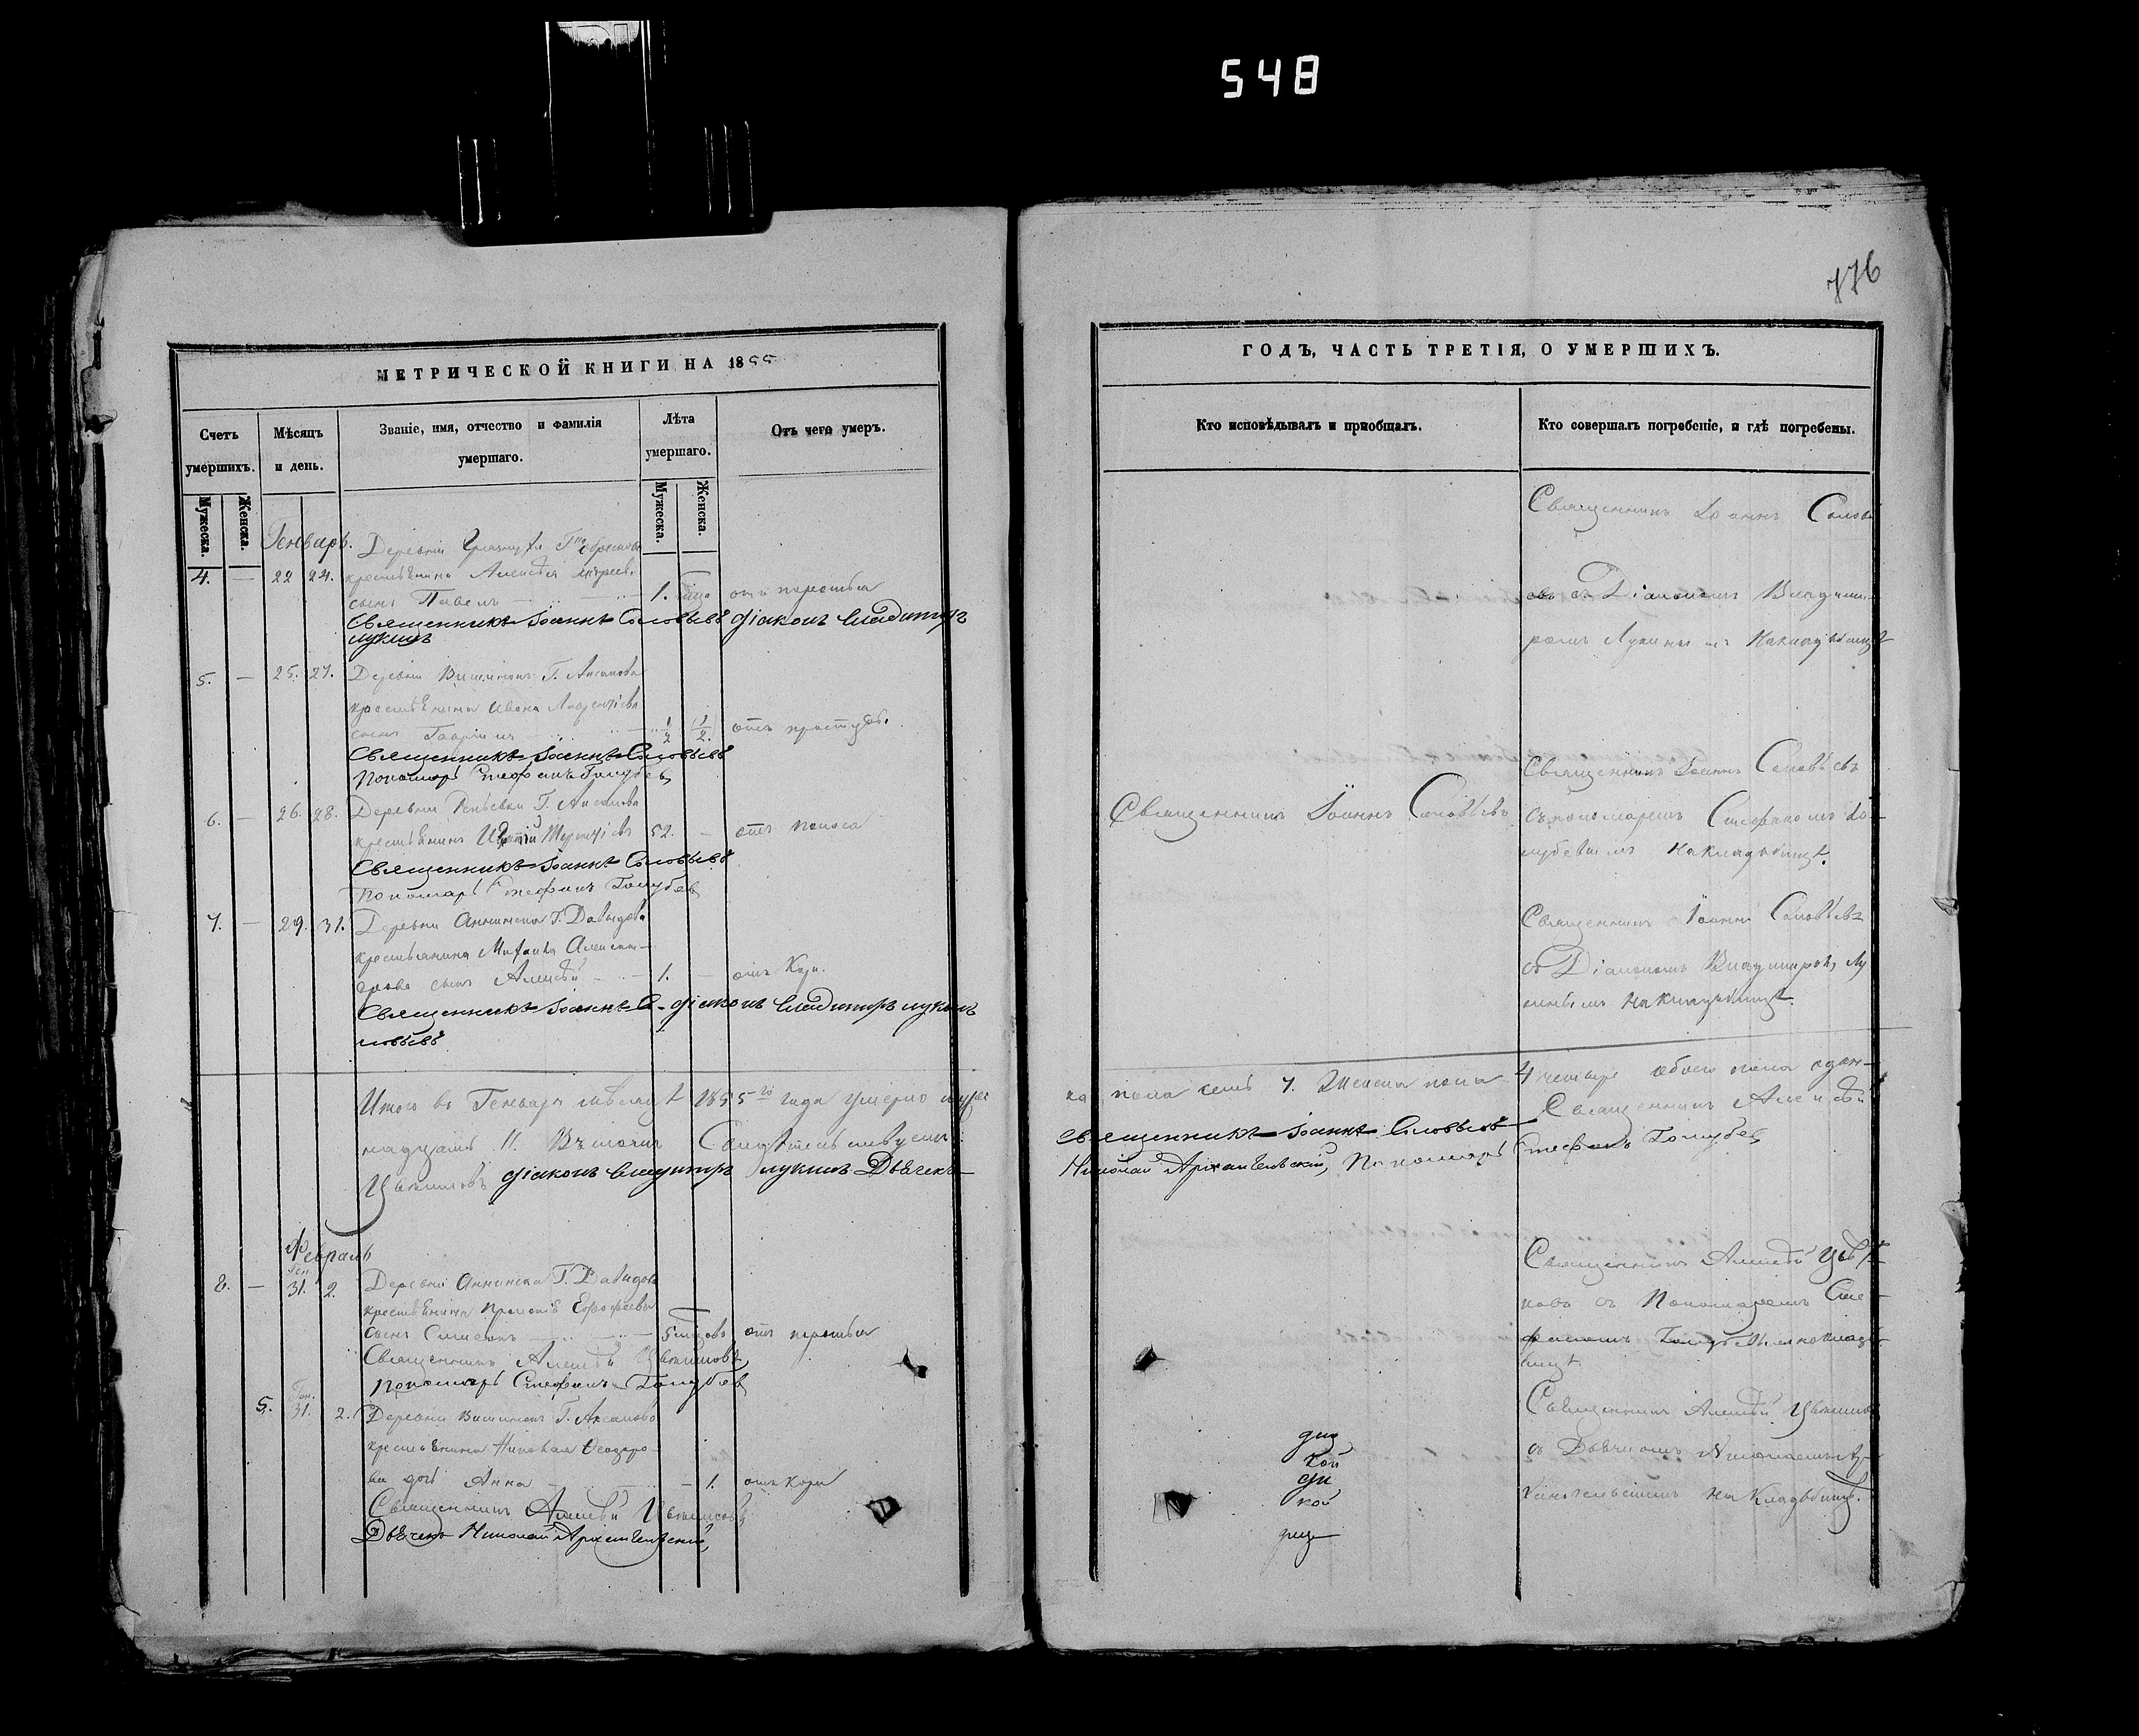 548
776
МЕТРИЧЕСКОЙ КНИГИ НА 1855
Счетъ умершихъ.
Мужеска.
Женска.
Мѣсяцъ и день.
Званіе, имя, отчество и фамилія умершаго.
Лѣта умершаго.
Мужеска.
Женска.
Отъ чего умеръ.
Генварь.
Деревни
4. — 22 24. крестьянина Алексѣя Андреева
сынъ Павелъ 1. отъ
Священникъ Іоаннъ Соловьевъ діаконъ Владимиръ
Лукинъ
5. — 25. 27. Деревни Г.
крестьянина Ивана
сынъ Гавріилъ 1/2 1/2. отъ простуды.
Священникъ Іоаннъ Соловьевъ
Пономарь Стефанъ Голубевъ
6. — 26. 28. Деревни Г.
крестьянинъ 52. — отъ поноса
Священникъ Іоаннъ Соловьевъ
Пономарь Стефанъ Голубевъ
7. — 29. 31. Деревни Аннинска Г. Давыдова
крестьянина Михаила Алексан-
дрова сынъ Алексѣй 1. — отъ Кори.
Священникъ Іоаннъ Со- діаконъ Владимиръ Лукинъ
ловьевъ
Итого въ Генварѣ мѣсяцѣ 1855го года умерло мужес
надцать 11. Свидѣтельствуемъ:
Цвѣтковъ діаконъ Владимиръ Лукинъ Дьячекъ
Февраль
Ген
8. — 31. 2. Деревни Аннинска Г. Давыдова
крестьянина Прокопія Ерофеева
сынъ Симеонъ 5 отъ
Священникъ Алексѣй Цвѣтковъ
Пономарь Стефанъ Голубевъ
Ген.
5. 31. 2. Деревни Г.
крестьянина Николая Ѳеодоро-
ва дочь Анна — 1. отъ Кори
Священникъ Алексѣй Цвѣтковъ
Дьячекъ Николай Архангельскій,
ГОДЪ, ЧАСТЬ ТРЕТІЯ, О УМЕРШИХЪ.
Кто исповѣдывалъ и пріобщалъ.
Кто совершалъ погребеніе, и гдѣ погребены.
Священникъ Іоаннъ Соловь
евъ съ Діакономъ Владими-
ромъ Лукинымъ на кладбищѣ
Священникъ Іоаннъ Соловьевъ
Священникъ Іоаннъ Соловьевъ
съ пономаремъ Стефаномъ Го-
лубевымъ на кладбищѣ.
Священникъ Іоаннъ Соловьевъ
съ Діакономъ Владимиромъ Лу
кинымъ на кладбищѣ.
ка пола семь 7. Женска пола 4 четыре обоего пола один-
Священникъ Алексѣй
священникъ Іоаннъ Соловьевъ
Николай Архангельскій, Пономарь Стефанъ Голубевъ
Священникъ Алексѣй Цвѣт
ковъ съ Пономаремъ Сте-
фаномъ Голубевымъ на клад-
бищѣ
Священникъ Алексѣй Цвѣтковъ
съ Дьячкомъ Николаемъ Ар-
хангельскимъ на Кладбищѣ.
кой
ди
кой